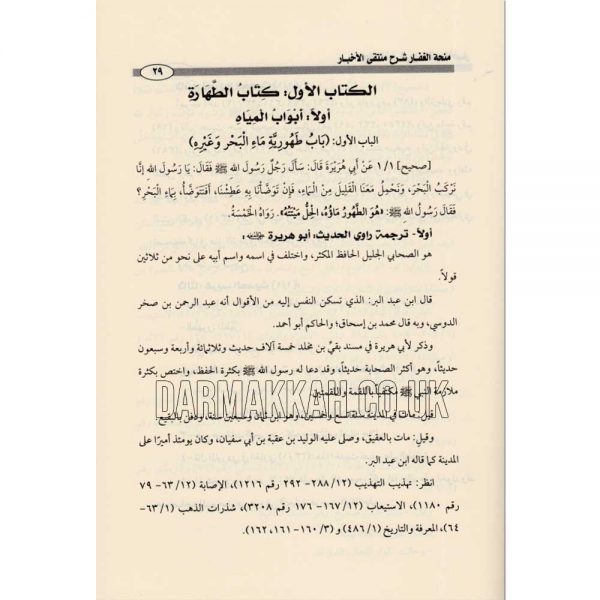 منحة الغفار شرح منتقى الأخبار
٢٩
الكتاب الأول: كِتَابُ الطَّهَارَةِ
أولاً: أبْوَابُ الْمِيَاهِ
الباب الأول: (بَابُ طَهُورِيَّةِ مَاءِ الْبَحْرِ وَغَيْرِهِ)
[صحيح] ١/١ عَنْ أَبِي هُرَيْرَةَ قَالَ: سَأَلَ رَجُلٌ رَسُولَ اللهِ ﷺ فَقَالَ: يَا رَسُولَ اللهِ إنَّا
نَرْكَبُ الْبَحْرَ، وَنَحْمِلُ مَعَنَا الْقَلِيلَ مِنَ الْمَاءِ، فَإِنْ تَوَضَّأْنَا بِهِ عَطِشْنَا، أَفَنَتَوَضَّأُ بِمَاءِ الْبَحْرِ؟
فَقَالَ رَسُولُ اللهِ ﷺ: «هُوَ الطَّهُورُ مَاؤُهُ، الْحِلُّ مَيْتَتُهُ». رَوَاهُ الْخَمْسَةُ.
أولاً- ترجمة راوي الحديث: أبو هريرة رضي الله عنه:
هو الصحابي الجليل الحافظ المكثر، واختلف في اسمه واسم أبيه على نحو من ثلاثين
قولاً.
قال ابن عبد البر: الذي تسكن النفس إليه من الأقوال أنه عبد الرحمن بن صخر
الدوسي، وبه قال محمد بن إسحاق؛ والحاكم أبو أحمد.
وذكر لأبي هريرة في مسند بقيّ بن مخلد خمسة آلاف حديث وثلاثمائة وأربعة وسبعون
حديثاً، وهو أكثر الصحابة حديثاً، وقد دعا له رسول الله ﷺ بكثرة الحفظ، واختص بكثرة
ملازمة النبي ﷺ مكتفياً باللقمة واللقمتين
DARMAKKAH.CO.UK
قيل: مات في المدينة سنة تسع وخمسين، وهو ابن ثمان وسبعين سنة، ودفن بالبقيع.
وقيل: مات بالعقيق، وصلى عليه الوليد بن عقبة بن أبي سفيان، وكان يومئذ أميراً على
المدينة كما قاله ابن عبد البر.
انظر: تهذيب التهذيب (١٢/ ٢٨٨- ٢٩٢ رقم ١٢١٦)، الإصابة (١٢/ ٦٣- ٧٩
رقم ١١٨٠)، الاستيعاب (١٢/ ١٦٧- ١٧٦ رقم ٣٢٠٨)، شذرات الذهب (١/ ٦٣-
٦٤)، المعرفة والتاريخ (١/ ٤٨٦) و (٣/ ١٦٠- ١٦١، ١٦٢).